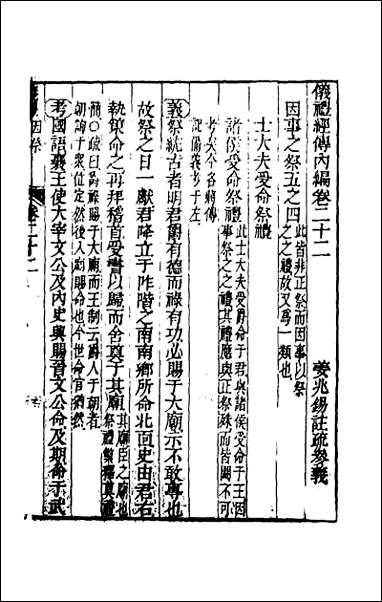 儀禮經傳內編卷二十二
姜兆錫註疏參義
因事之祭五之四此皆非正祭而因事以祭之之禮故又爲一類也
士大夫受命祭禮
此士大夫受爵命于君與諸侯受命于王因
諸侯受命祭禮事祭之之禮其禮應與正祭殊而皆闕不可
考矣今各將傳
記備義考于左
義祭統古者明君爵有德而祿有功必賜于大廟示不敢專也
故祭之日一獻君降立于阼階之南南鄉所命北面史由君右
執策命之再拜稽首受書以歸而舍奠于其廟
簡○疏曰爵祿賜于大廟而王制云爵人于朝者
考國語襄王使大宰文公及內史興賜晉文公命及期命于武